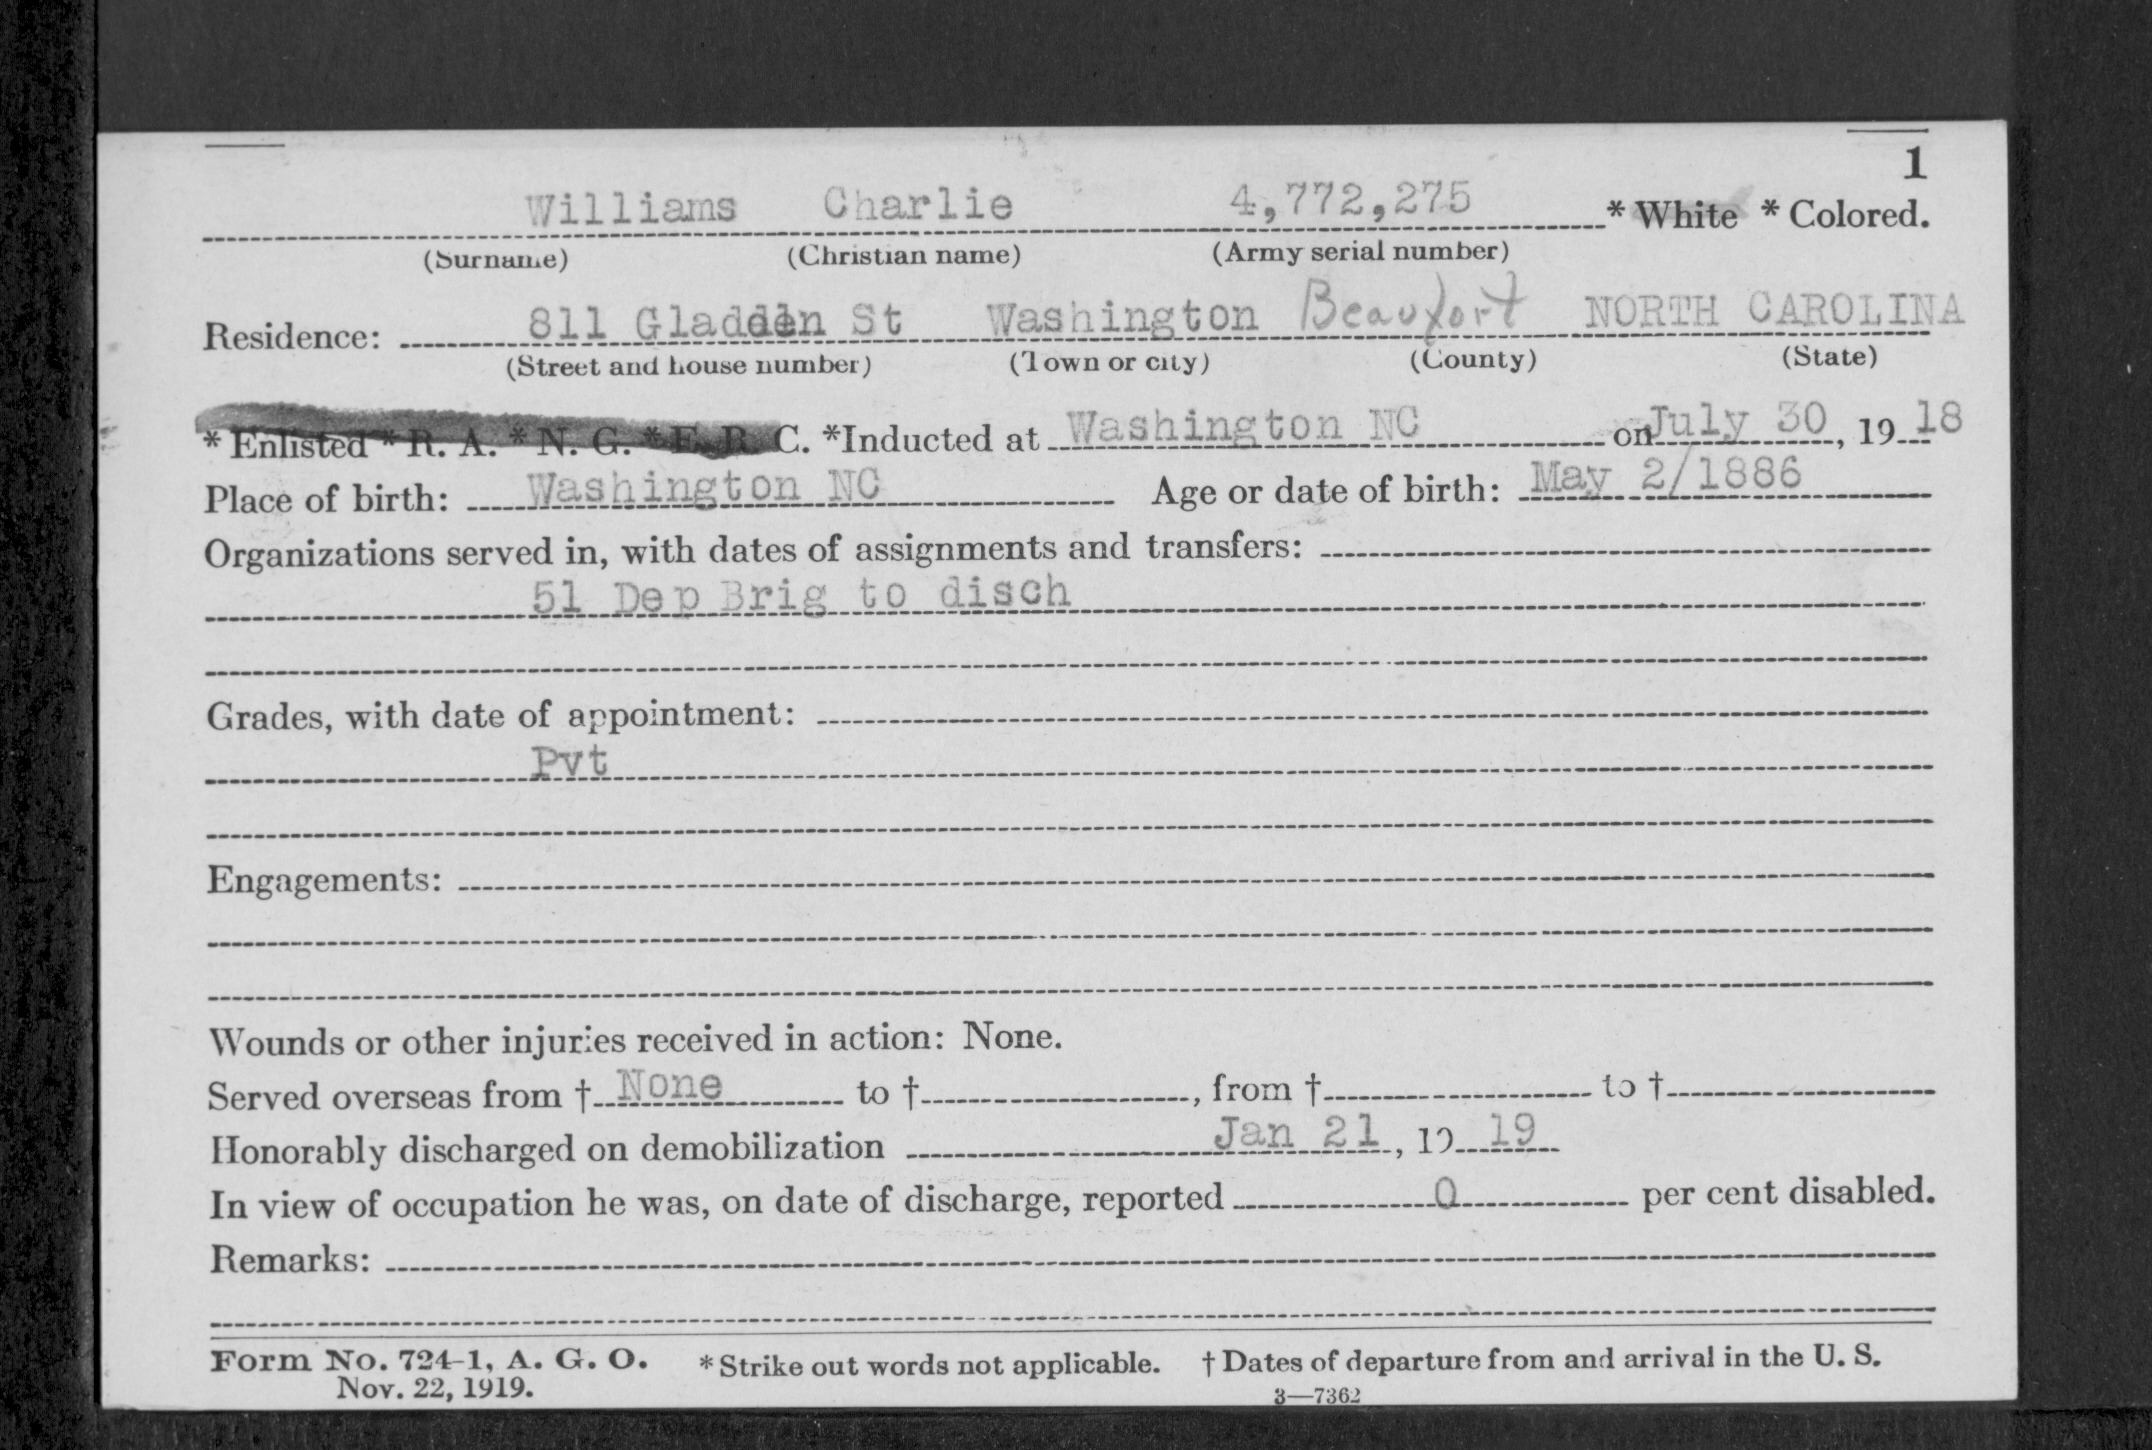 1
Williams Charlie 4,772,275 * White * Colored.
(Surname) (Christian name) (Army serial number)
Residence: 811 Gladden St Washington Beaufort NORTH CAROLINA
(Street and house number) (Town or city) (County) (State)
* Enlisted * R. A. * N. G. * E. R. C. *Inducted at Washington NC on July 30, 19 18
Place of birth: Washington NC Age or date of birth: May 2/1886
Organizations served in, with dates of assignments and transfers:
51 Dep Brig to disch
Grades, with date of appointment:
Pvt
Engagements:
Wounds or other injuries received in action: None.
Served overseas from † None to † , from † to †
Honorably discharged on demobilization Jan 21, 19 19
In view of occupation he was, on date of discharge, reported 0 per cent disabled.
Remarks:
Form No. 724-1, A. G. O. * Strike out words not applicable. † Dates of departure from and arrival in the U. S.
Nov. 22, 1919. 3—7362